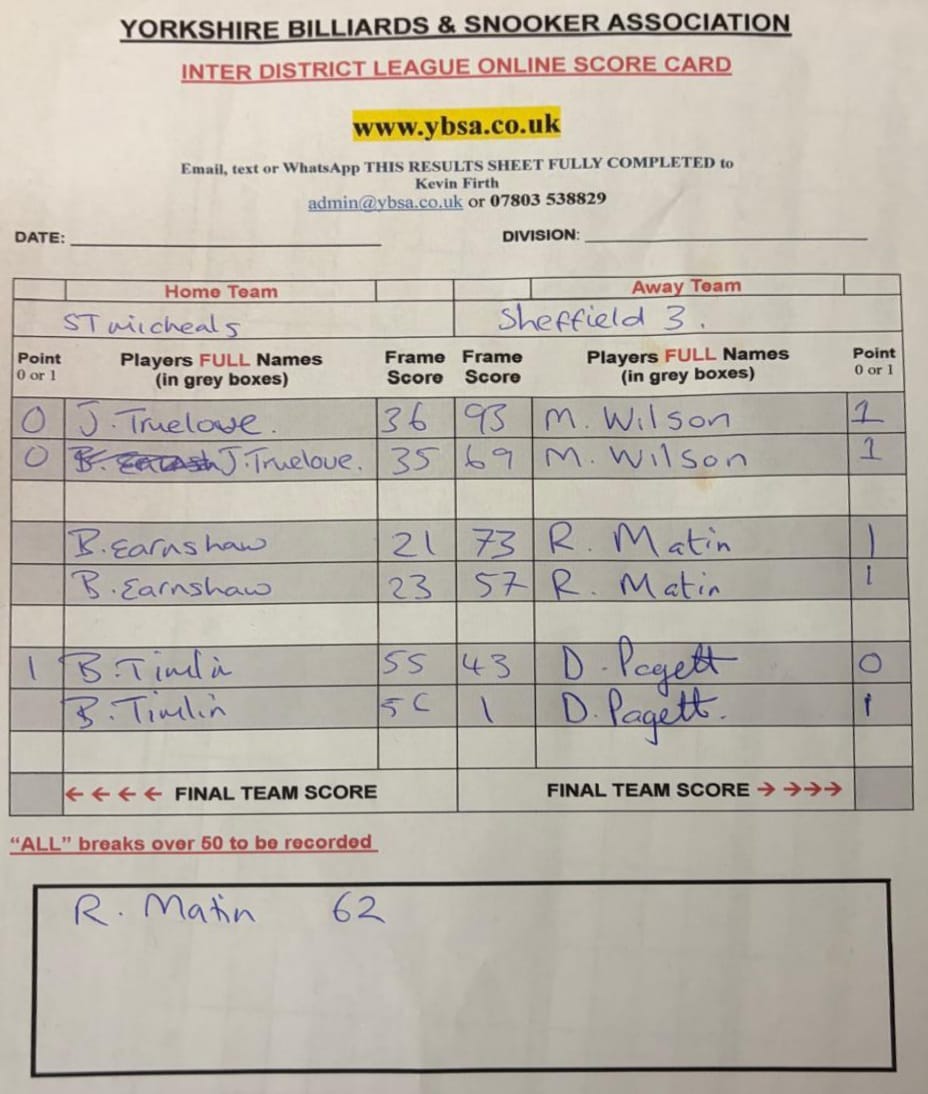 YORKSHIRE BILLIARDS & SNOOKER ASSOCIATION
INTER DISTRICT LEAGUE ONLINE SCORE CARD
www.ybsa.co.uk
Email, text or WhatsApp THIS RESULTS SHEET FULLY COMPLETED to
Kevin Firth
admin@ybsa.co.uk or 07803 538829
DATE: DIVISION:
Home Team Away Team
ST micheals Sheffield 3.
Point Players FULL Names Frame Frame Players FULL Names Point
0 or 1 (in grey boxes) Score Score (in grey boxes) 0 or 1
0 J. Truelove. 36 93 M. Wilson 1
0 J. Truelove. 35 69 M. Wilson 1
B. Earnshaw 21 73 R. Matin 1
B. Earnshaw 23 57 R. Matin 1
1 B. Timlin 55 43 D. Pagett 0
B. Timlin 1 D. Pagett. 1
← ← ← ← FINAL TEAM SCORE FINAL TEAM SCORE → → → →
“ALL” breaks over 50 to be recorded
R. Matin 62